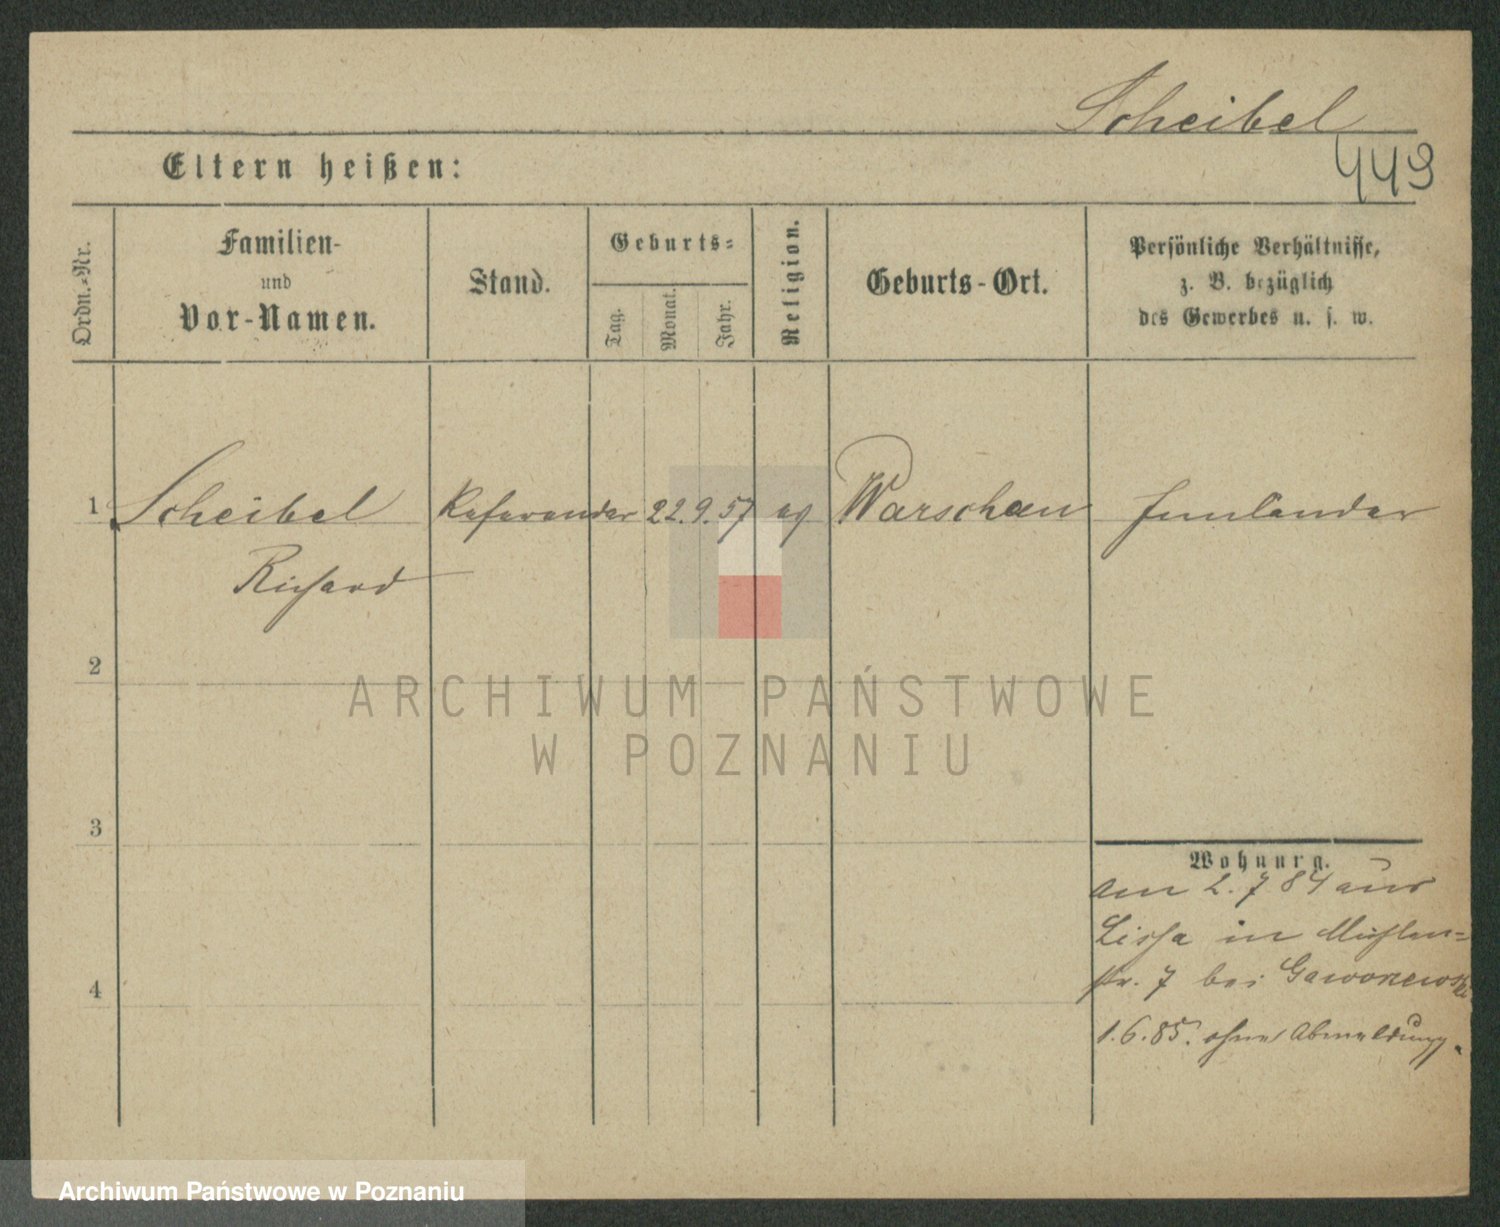 Scheibel
Eltern heißen:
449
Ordn.-Nr.
Familien-
und
Vor-Namen.
Stand.
Geburts-
Tag.
Monat.
Jahr.
Religion.
Geburts-Ort.
Persönliche Verhältnisse,
z. B. bezüglich
des Gewerbes u. s. w.
1 Scheibel Referendar 22.9.57 ev Warschau Innländer
Richard
2
ARCHIWUM PAŃSTWOWE
W POZNANIU
3
Wohnung.
am 2.7 84 aus
Lissa in Mühlen-
str. 7 bei Gaworzewski
4
1.6.85. ohne Abmeldung.
Archiwum Państwowe w Poznaniu